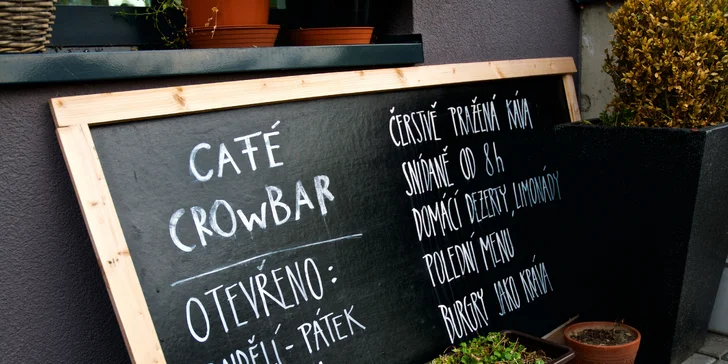 CAFÉ
CROWBAR
OTEVŘENO:
PONDĚLÍ - PÁTEK
ČERSTVĚ PRAŽENÁ KÁVA
SNÍDANĚ OD 8h
DOMÁCÍ DEZERTY, LIMONÁDY
POLEDNÍ MENU
BURGRY JAKO KRÁVA